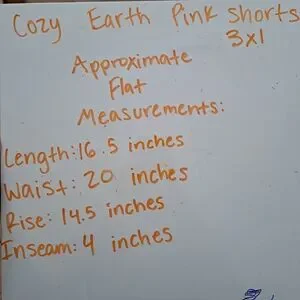 Cozy Earth Pink Shorts
3x1
Approximate
Flat
Measurements:
Length: 16.5 inches
Waist: 20 inches
Rise: 14.5 inches
Inseam: 4 inches